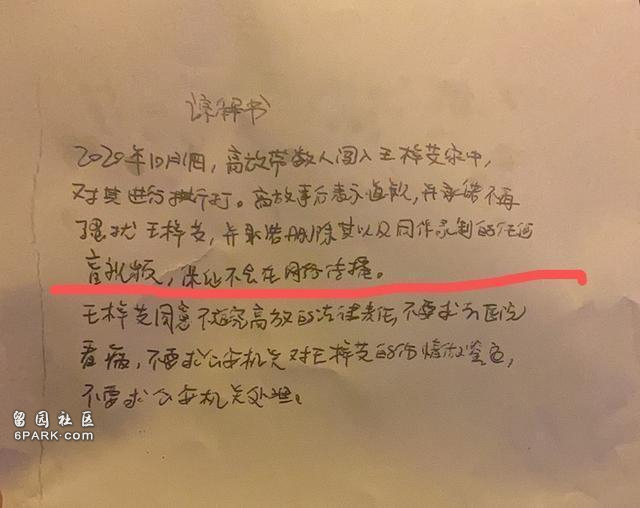 谅解书
2020年10月1日，高放带数人闯入王梓芠家中，
对其进行殴打。高放事后表示道歉，并承诺不再
骚扰王梓芠，并承诺删除其以及同伴录制的任何
音视频，保证不会在网络传播。
王梓芠同意不追究高放的法律责任，不要求去医院
看病，不要求公安机关对王梓芠的伤情做鉴定，
不要求公安机关处理。
留园社区
6PARK.com